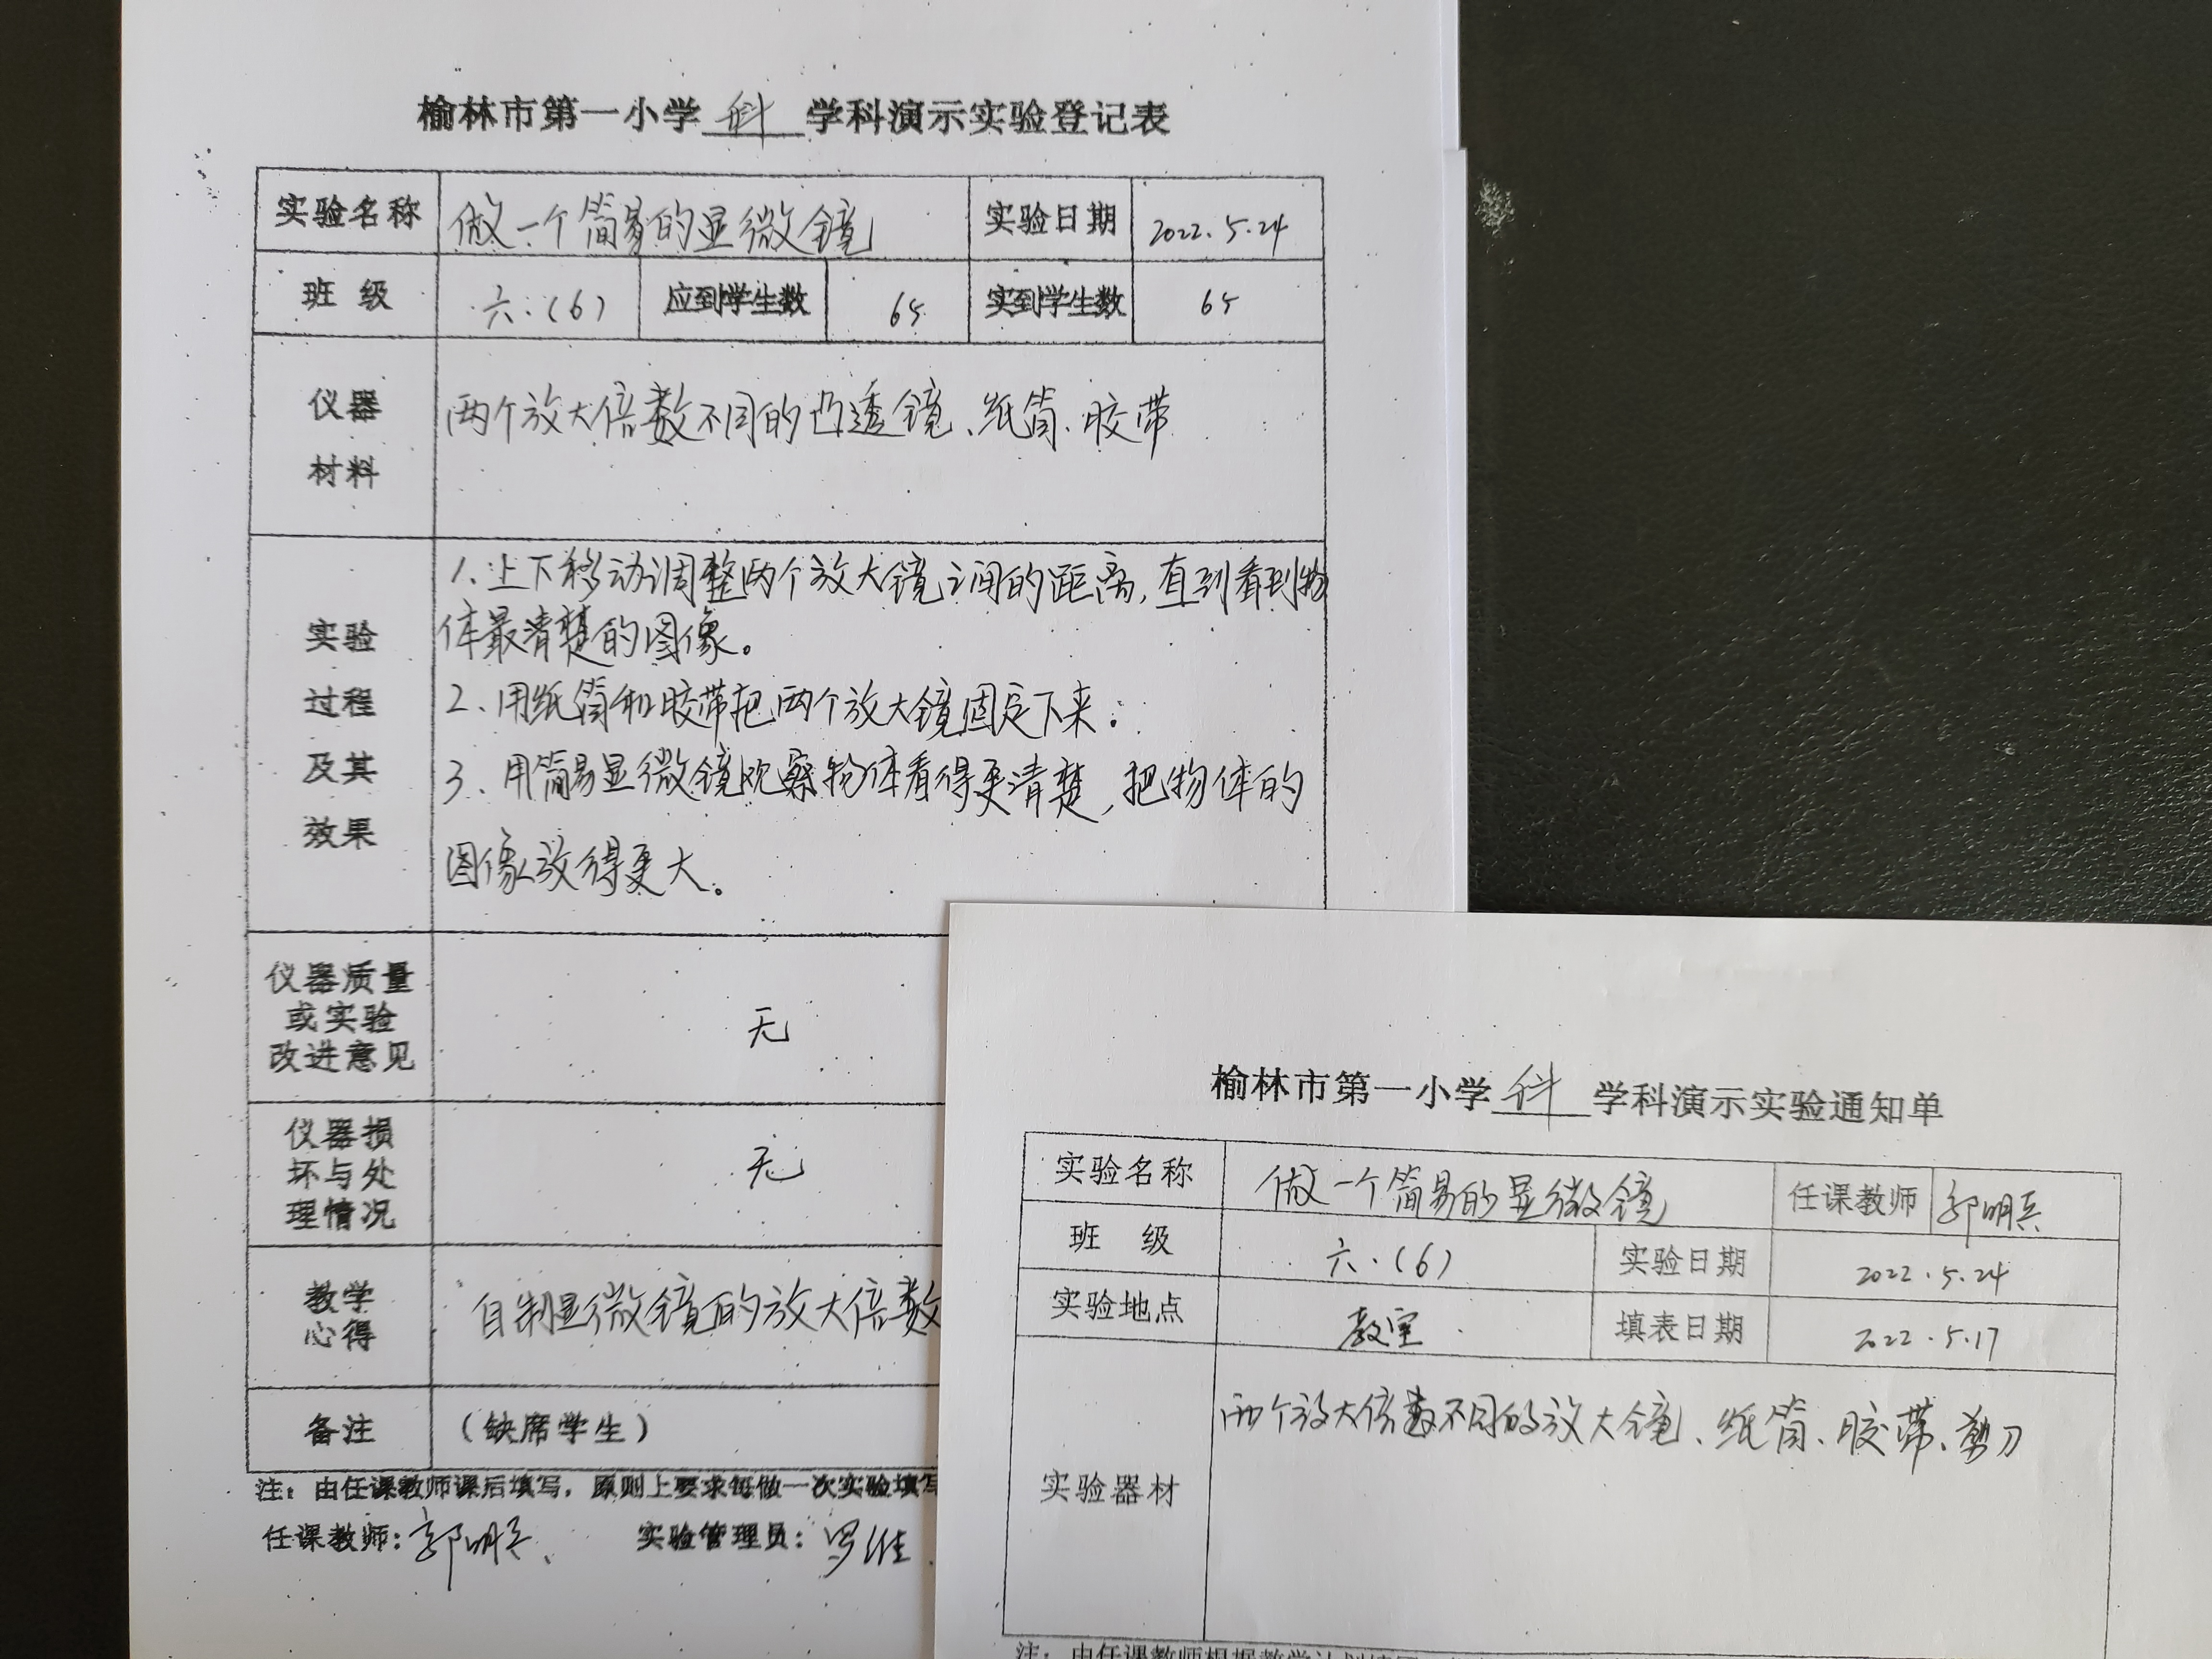 榆林市第一小学 科 学科演示实验登记表
实验名称 做一个简易的显微镜 实验日期 2022.5.24
班 级 六.(6) 应到学生数 65 实到学生数 65
仪器
材料
两个放大倍数不同的凸透镜、纸筒、胶带
实验
过程
及其
效果
1、上下移动调整两个放大镜之间的距离,直到看到物
体最清楚的图像。
2、用纸筒和胶带把两个放大镜固定下来。
3、用简易显微镜观察物体看得更清楚,把物体的
图像放得更大。
仪器质量
或实验
改进意见
无
仪器损
坏与处
理情况
无
教学
心得
自制显微镜的放大倍数
备注 (缺席学生)
注:由任课教师课后填写,原则上要求每做一次实验填写
任课教师:郭明兵 实验管理员:罗维
榆林市第一小学 科 学科演示实验通知单
实验名称 做一个简易的显微镜 任课教师 郭明兵
班 级 六.(6) 实验日期 2022.5.24
实验地点 教室 填表日期 2022.5.17
实验器材 两个放大倍数不同的放大镜、纸筒、胶带、剪刀
注:由任课教师根据教学计划